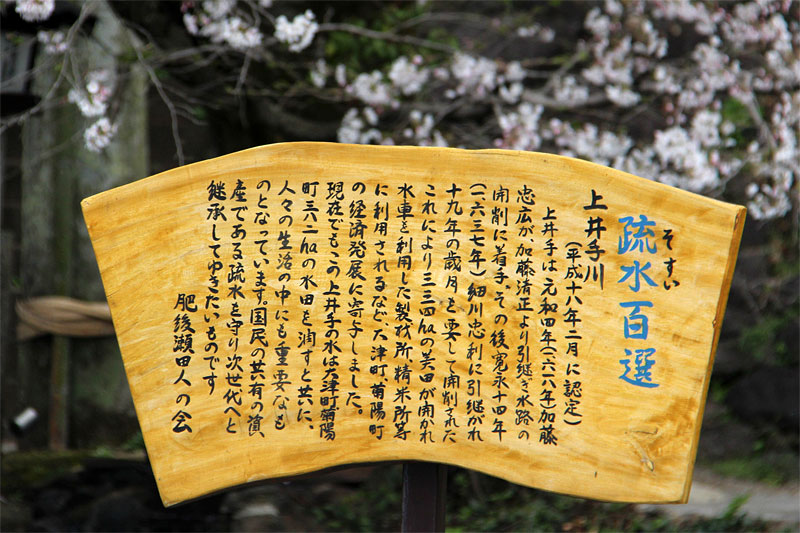 そすい
疏水百選
上井手川
(平成十八年二月に認定)
上井手は元和四年(一六一八年)加藤
忠広が、加藤清正より引継ぎ水路の
開削に着手、その後寛永十四年
(一六三七年)細川忠利に引継がれ
十九年の歳月を要して開削された
これにより三三四haの美田が開かれ
水車を利用した製材所、精米所等
に利用されるなど、大津町、菊陽町
の経済発展に寄与しました。
現在でもこの上井手の水は大津町菊陽
町三六二haの水田を潤すと共に、
人々の生活の中にも重要なも
のとなっています。国民の共有の資
産である疏水を守り次世代へと
継承してゆきたいものです
肥後瀬田人の会